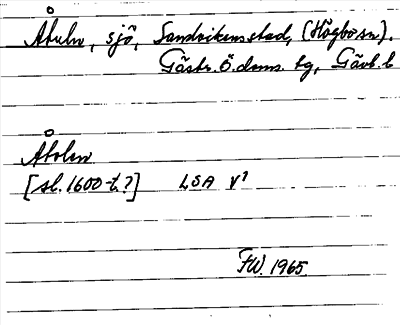 Åkuln, sjö, Sandvikens stad, (Högbo sn).
Gästr. Ö. doms. tg, Gävl. l
Åkolen
[sl. 1600-t.?] LSA V¹
FW. 1965